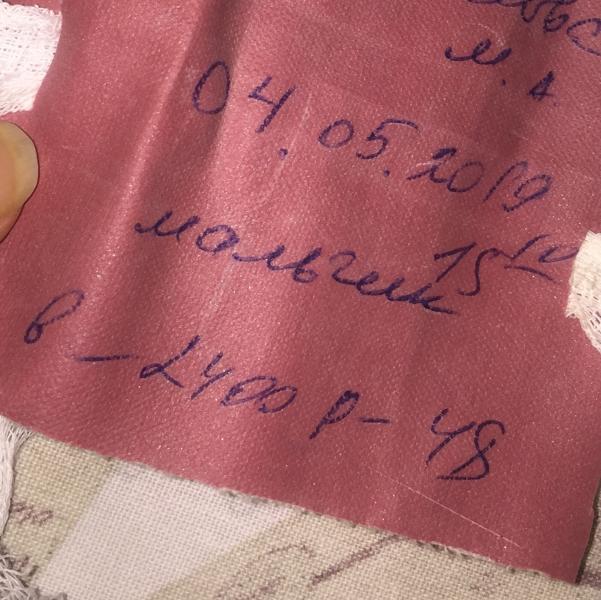 М. А
04.05.2019
мальчик 15 10
в - 2400 р - 48